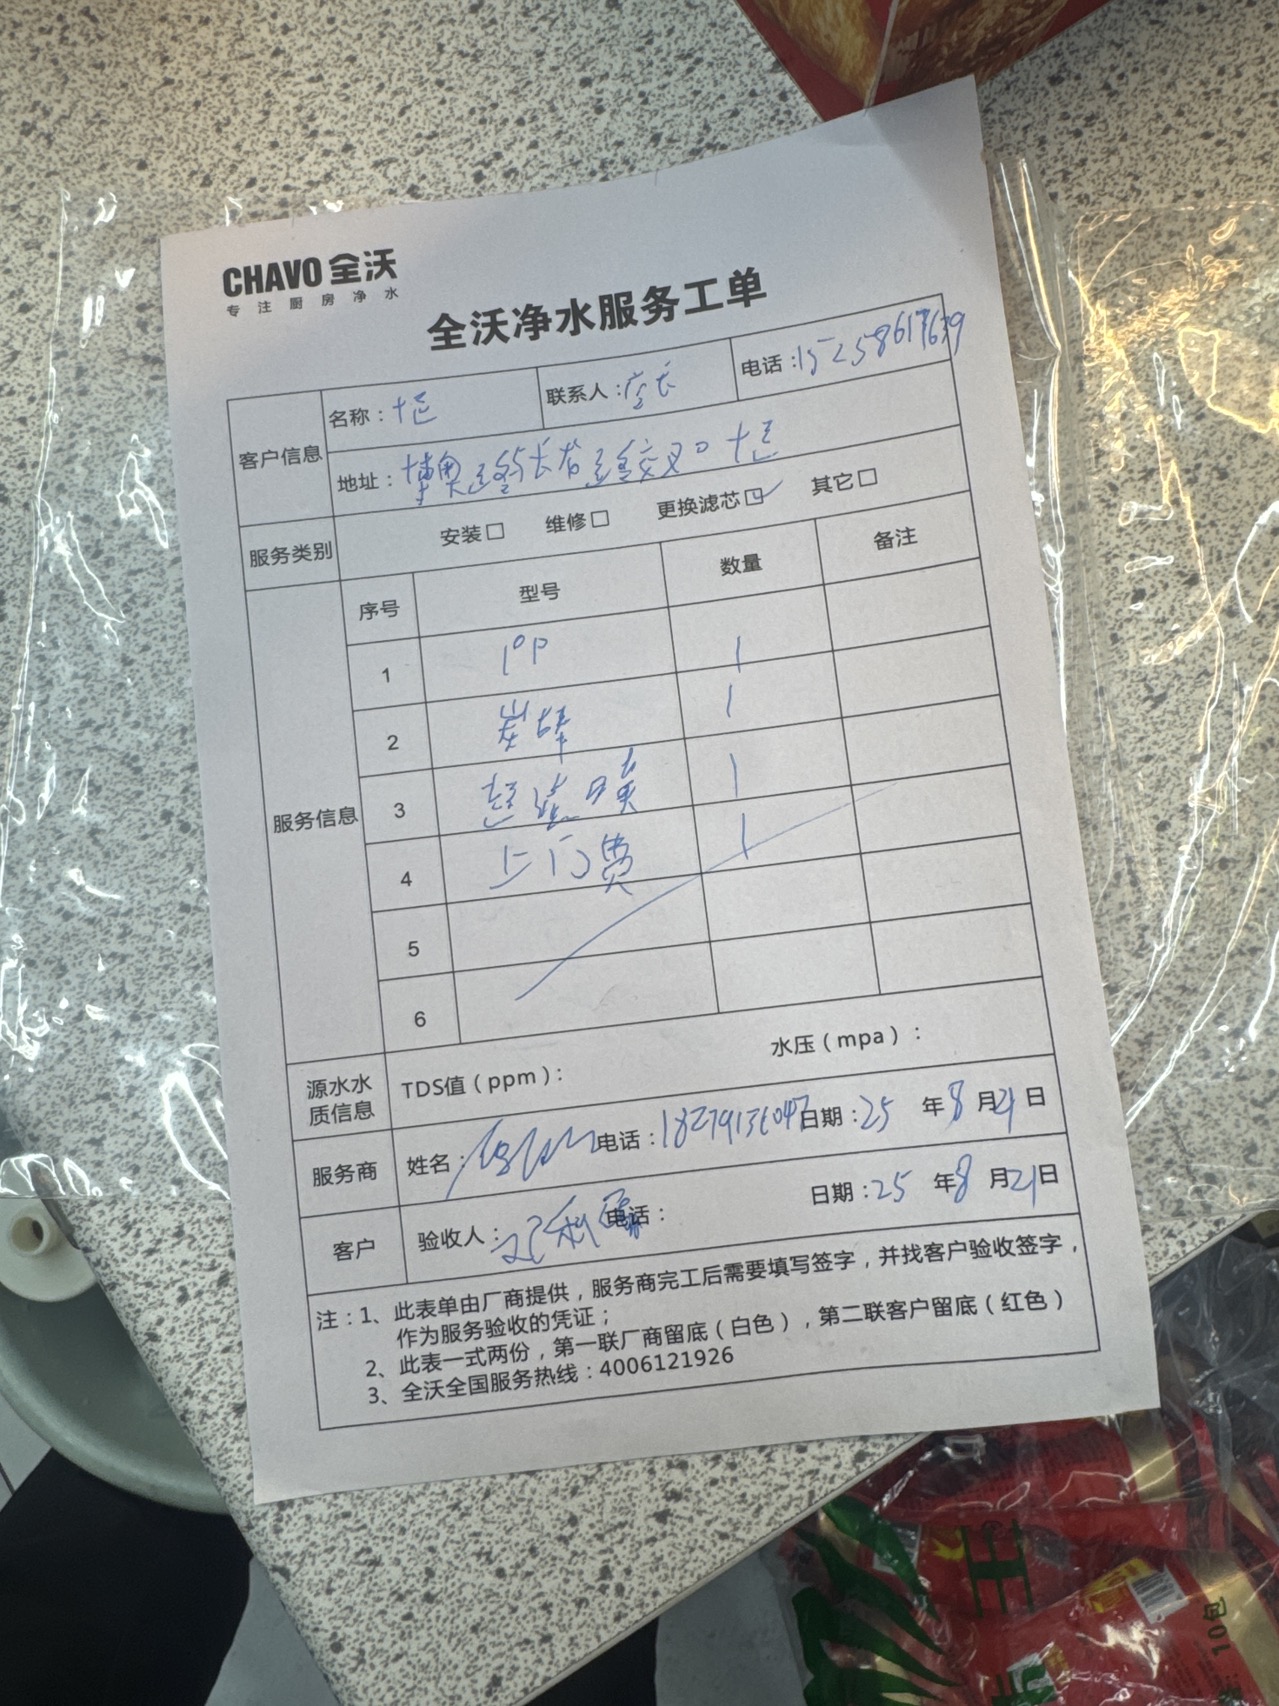 CHAVO 全沃
专注厨房净水
全沃净水服务工单
客户信息
名称：
联系人：店长
电话：15258617639
地址：博奥路与长龙路交叉口
服务类别
安装□ 维修□ 更换滤芯☑ 其它□
服务信息
序号 型号 数量 备注
1 PP 1
2 炭棒 1
3 1
4 上门费 1
5
6
源水水质信息
TDS值（ppm）： 水压（mpa）：
服务商
姓名： 电话：18279136047 日期：25 年 8 月 21 日
客户
验收人： 电话： 日期：25 年 8 月 21 日
注：1、此表单由厂商提供，服务商完工后需要填写签字，并找客户验收签字，
作为服务验收的凭证；
2、此表一式两份，第一联厂商留底（白色），第二联客户留底（红色）
3、全沃全国服务热线：4006121926
王
10包